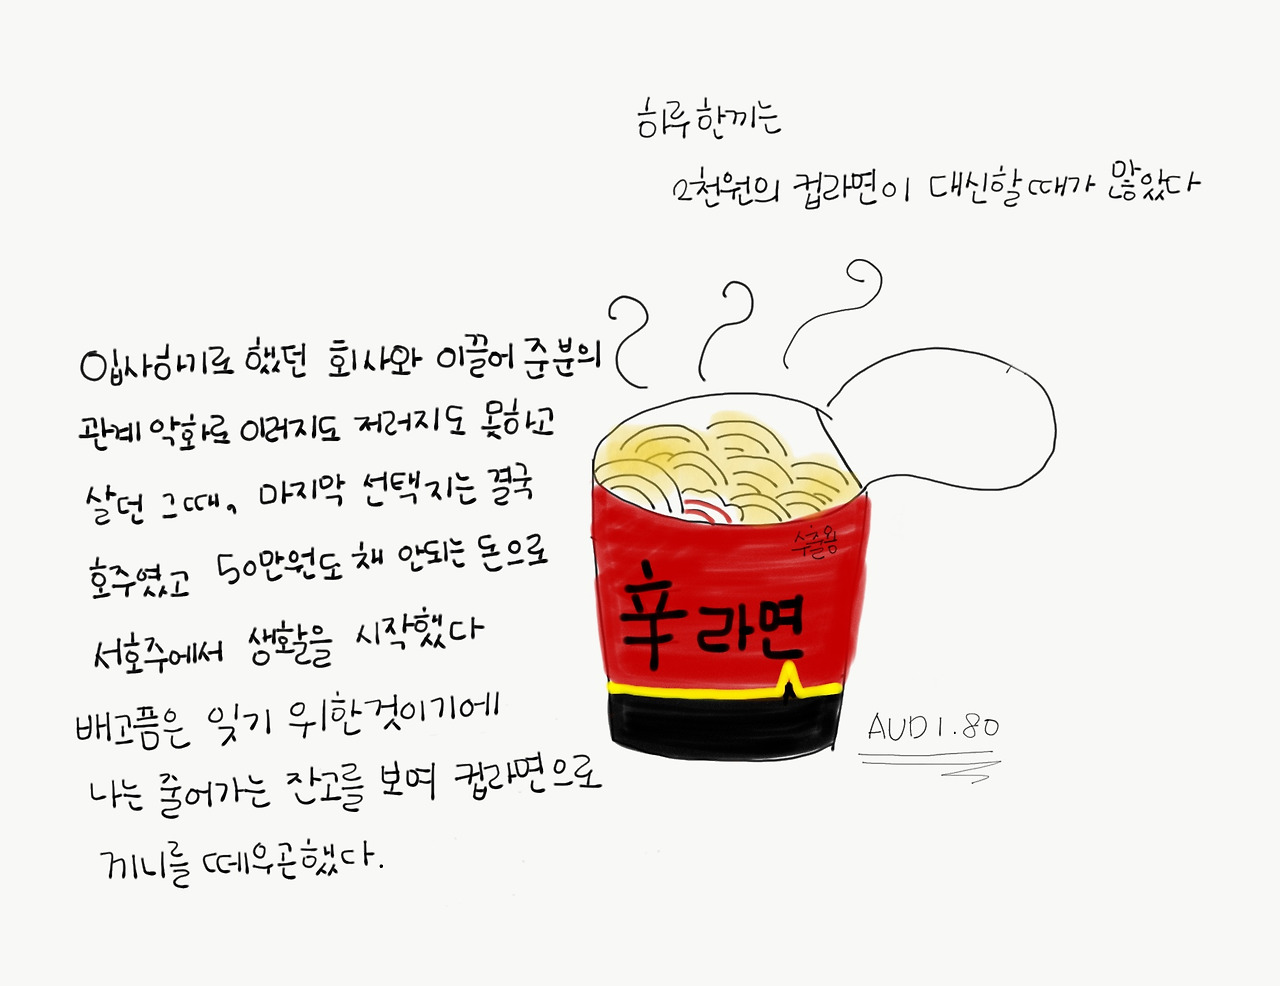 하루 한끼는
2천원의 컵라면이 대신할때가 많았다
입사하기로 했던 회사와 이끌어 준분의
관계 악화로 이러지도 저러지도 못하고
살던 그때, 마지막 선택지는 결국
호주였고 50만원도 채 안되는 돈으로
서호주에서 생활을 시작했다
배고픔은 잊기 위한것이기에
나는 줄어가는 잔고를 보며 컵라면으로
끼니를 떼우곤했다.
수출용
辛라면
AUD 1.80